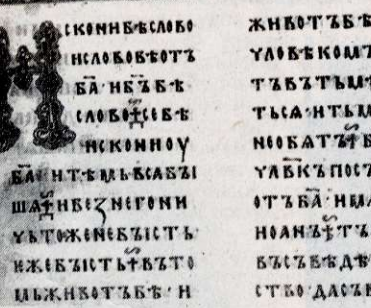 ИСКОНИБѢСЛОВО
ИСЛОВОБѢОТЪ
БА҃·ИБЪ҃БѢ
СЛОВО☩СЕБѢ
ИСКОНИОУ
БА҃·ИТѢМЬВСАБЫ
ШѦ☩ИБЕЗНЕГОНИ
ЧЬТОЖЕНЕБЫСТЬ·
ИЖЕБЫСТЬ☩ВЪТО
МЬЖИВОТЪБѢ·И
ЖИВОТЪБѢ
ЧЛОВѢКОМЪ
ТЪВЪТЬМѢ
ТЬСѦ·ИТЬМ
НЕОБѦТЪ☩Б
ЧЛВ҃КЪПОСЪ
ОТЪБА҃·ИМѦ
ИОАНЪ☩ТЪ
ВЪСЪВѢДѢ
СТВОДАСЪВ